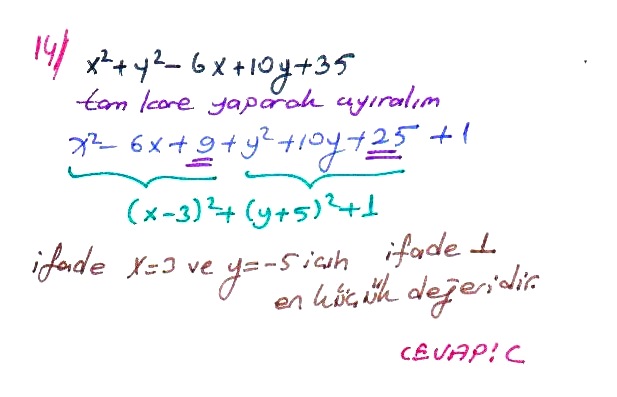 14) x²+y²-6x+10y+35
tam kare yaparak ayıralım
x²-6x+9+y²+10y+25+1
(x-3)²+(y+5)²+1
ifade x=3 ve y=-5 için ifade 1
en küçük değeridir.
CEVAP: C